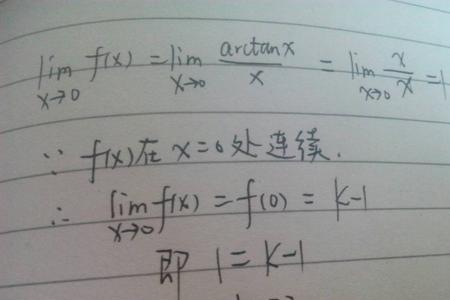 lim x→0 f(x) = lim x→0 arctanx/x = lim x→0 x/x = 1
∵ f(x)在 x=0处连续.
∴ lim x→0 f(x) = f(0) = k-1
即 1 = k-1